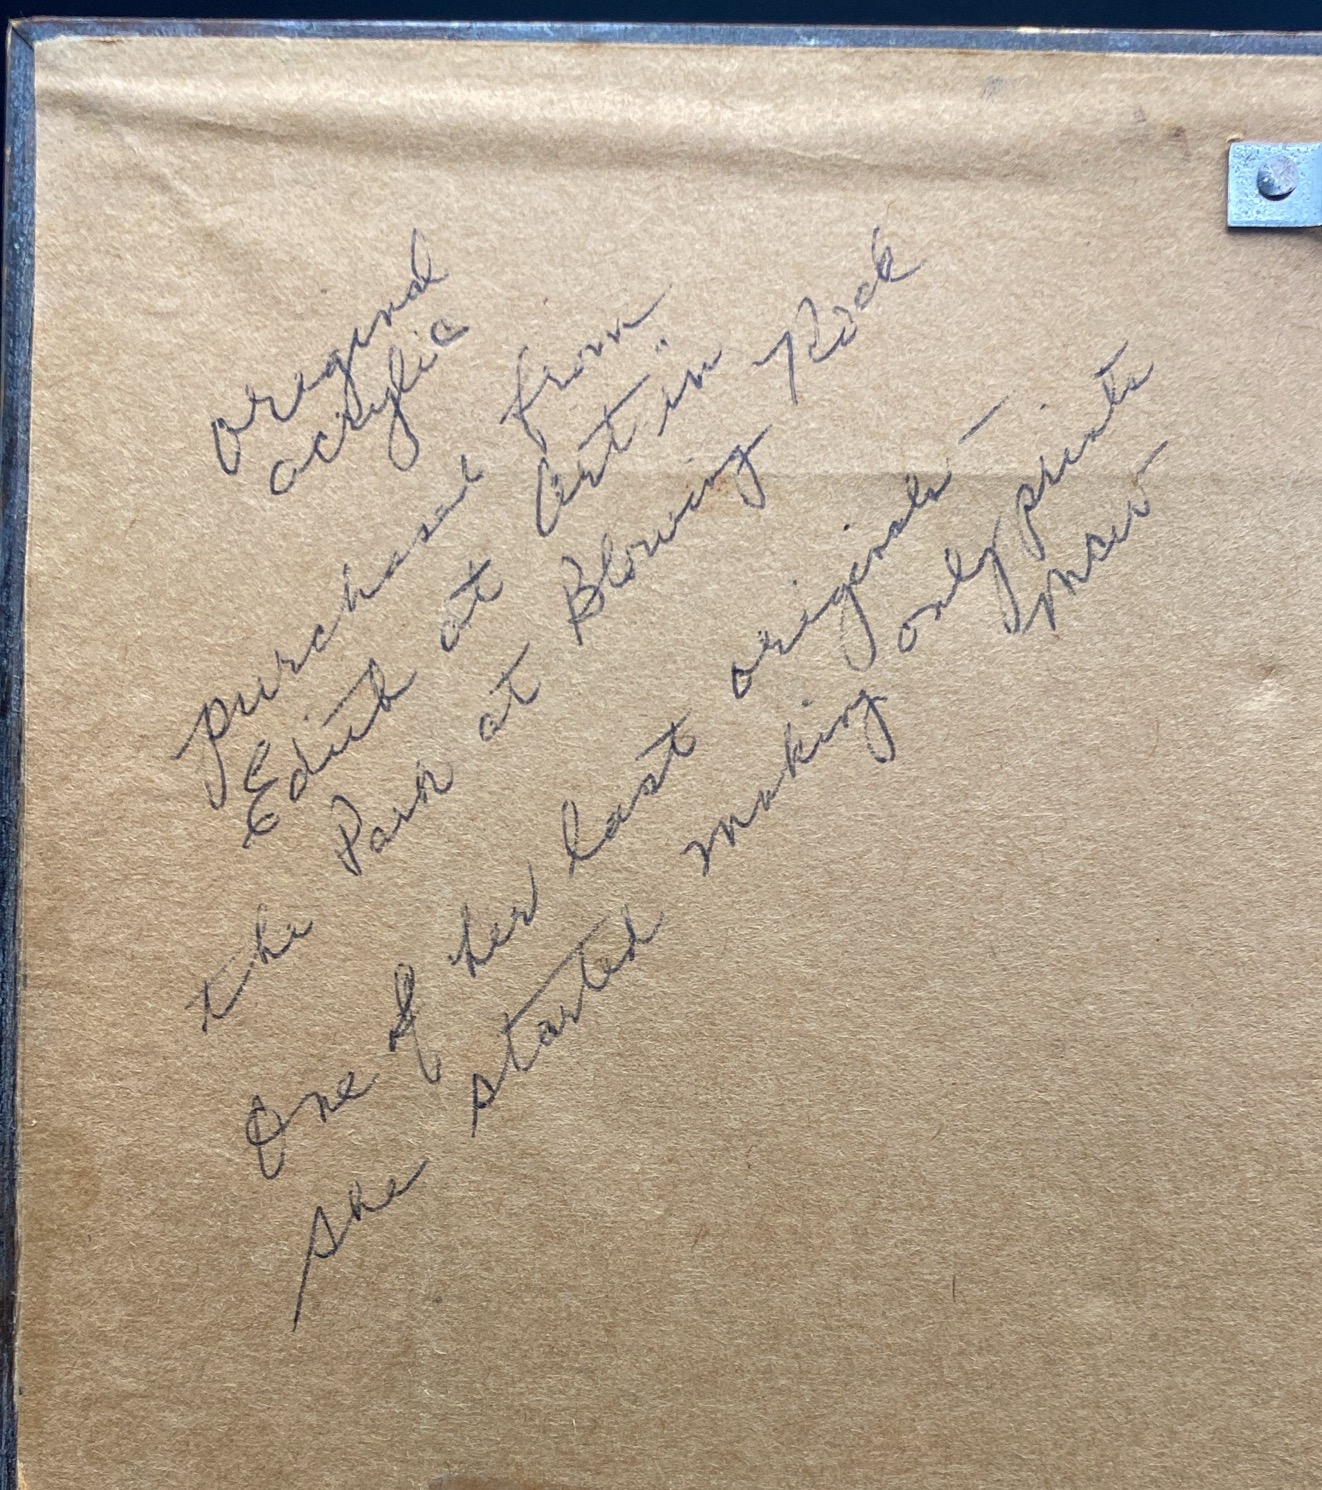 original
acrylic
purchased from
Edith at Art in
the Park at Blowing Rock
One of her last originals -
she started making only prints